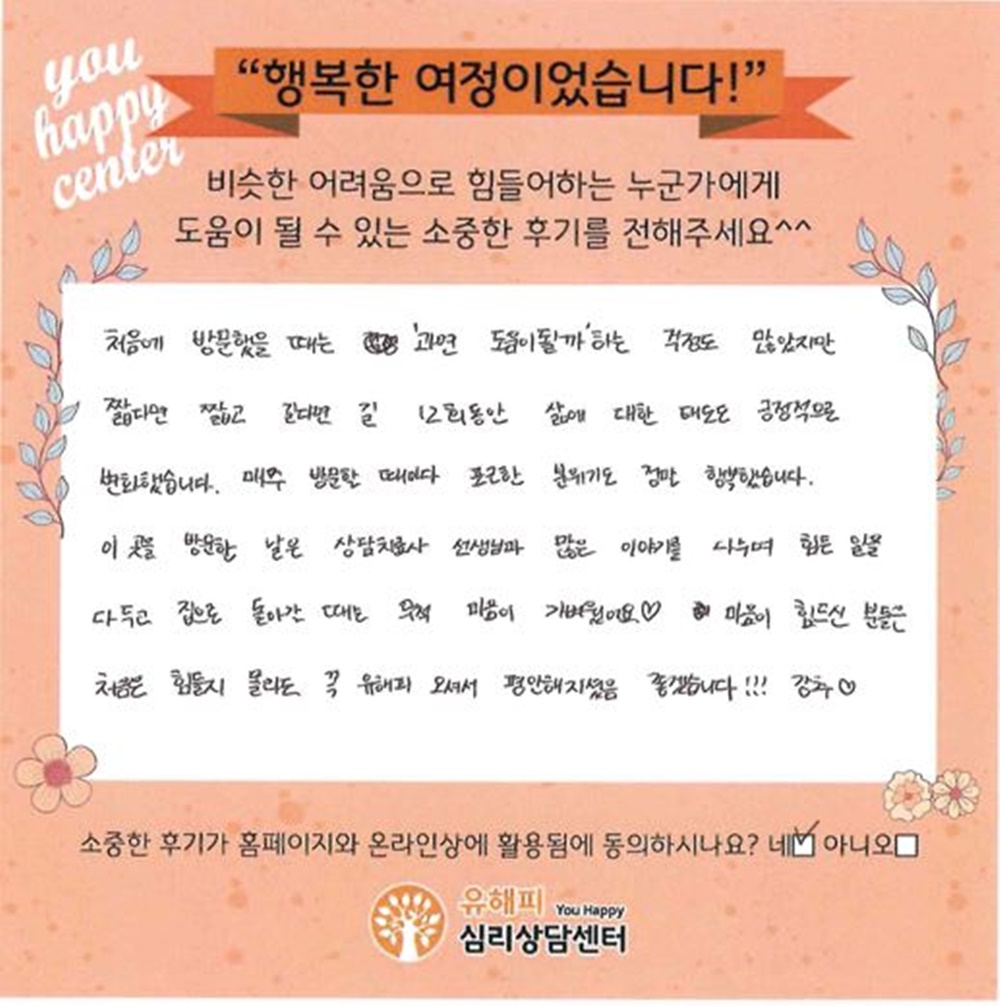 you
happy
center
“행복한 여정이었습니다!”
비슷한 어려움으로 힘들어하는 누군가에게
도움이 될 수 있는 소중한 후기를 전해주세요^^
처음에 방문했을 때는 '과연 도움이될까'하는 걱정도 많았지만
짧다면 짧고 길다면 길 12회동안 삶에 대한 태도도 긍정적으로
변화했습니다. 매주 방문할 때마다 포근한 분위기도 정말 행복했습니다.
이 곳을 방문한 날은 상담치료사 선생님과 많은 이야기를 나누며 힘든 일을
다두고 집으로 돌아갈 때는 무척 마음이 가벼웠어요♡ 마음이 힘드신 분들은
처음은 힘들지 몰라도 꼭 유해피 오셔서 평안해지셨음 좋겠습니다!!! 강추♡
소중한 후기가 홈페이지와 온라인상에 활용됨에 동의하시나요? 네☑ 아니오☐
유해피 You Happy
심리상담센터